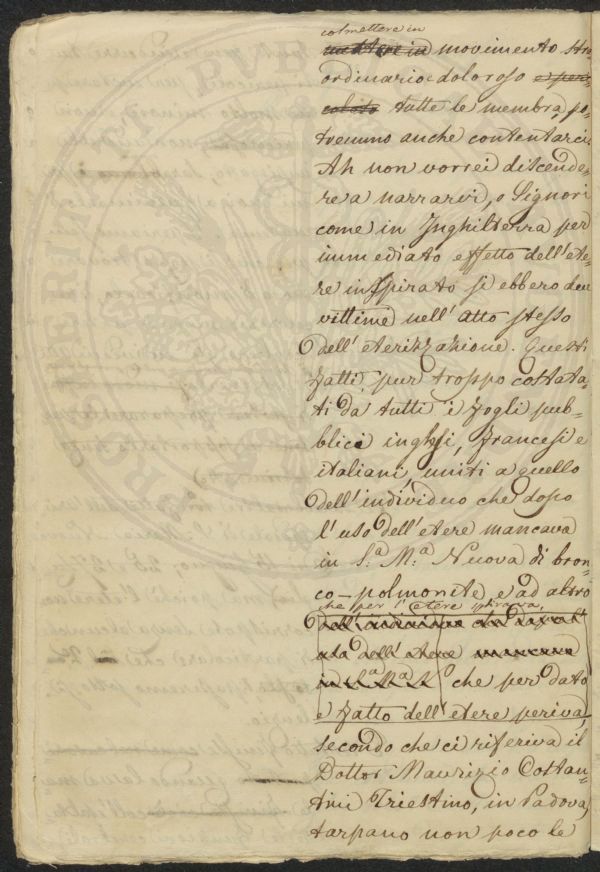 col mettere in
mettere in movimento stra-
ordinario e doloroso e per
colato tutte le membra, po-
tremmo anche contentarci.
Ah non vorrei discende-
re a narrarvi, o Signori
come in Inghilterra per
immediato effetto dell'ete-
re inspirato si ebbero due
vittime nell'atto stesso
dell'eterizzazione. Questi
fatti, pur troppo costata-
ti da tutti i fogli pub-
blici inglesi, francesi e
italiani, uniti a quello
dell'individuo che dopo
l'uso dell'etere mancava
in S.a M.a Nuova di bron-
co-polmonite, e ad altro
che per l'etere spirava,
dell'individuo che dopo l'
uso dell'etere mancava
in S.a M.a N che per dato
e fatto dell'etere periva,
secondo che ci riferiva il
Dottor Maurizio Costan-
tini Triestino, in Padova,
tarpano non poco le